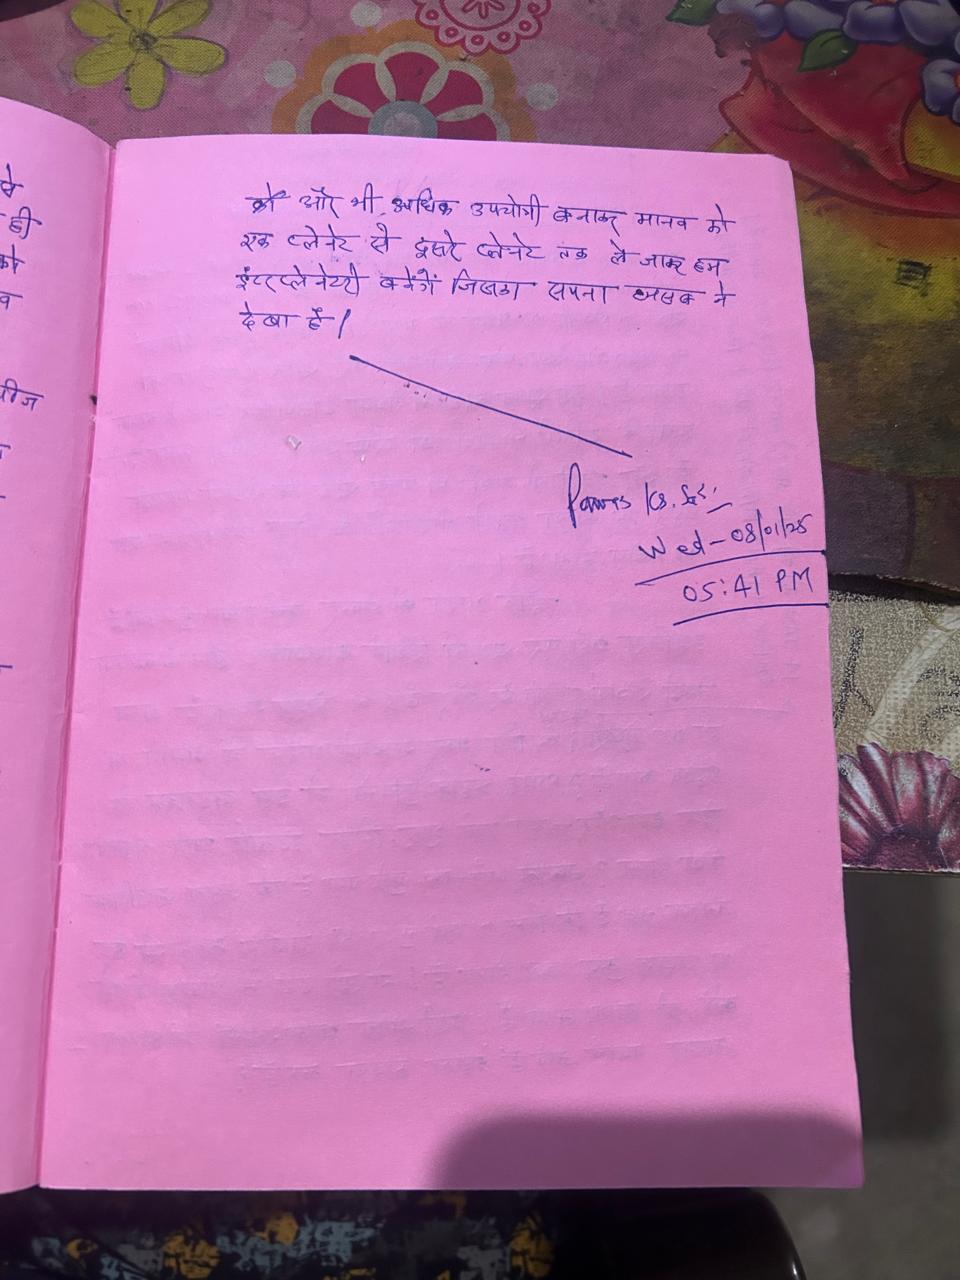 से
ही
को
व
चीज
को और भी अधिक उपयोगी बनाकर मानव को
एक प्लेनेट से दूसरे प्लेनेट तक ले जाकर हम
इंटरप्लेनेटरी बनेंगें जिसका सपना मस्क ने
देखा है।
Wed - 08/01/25
05:41 PM